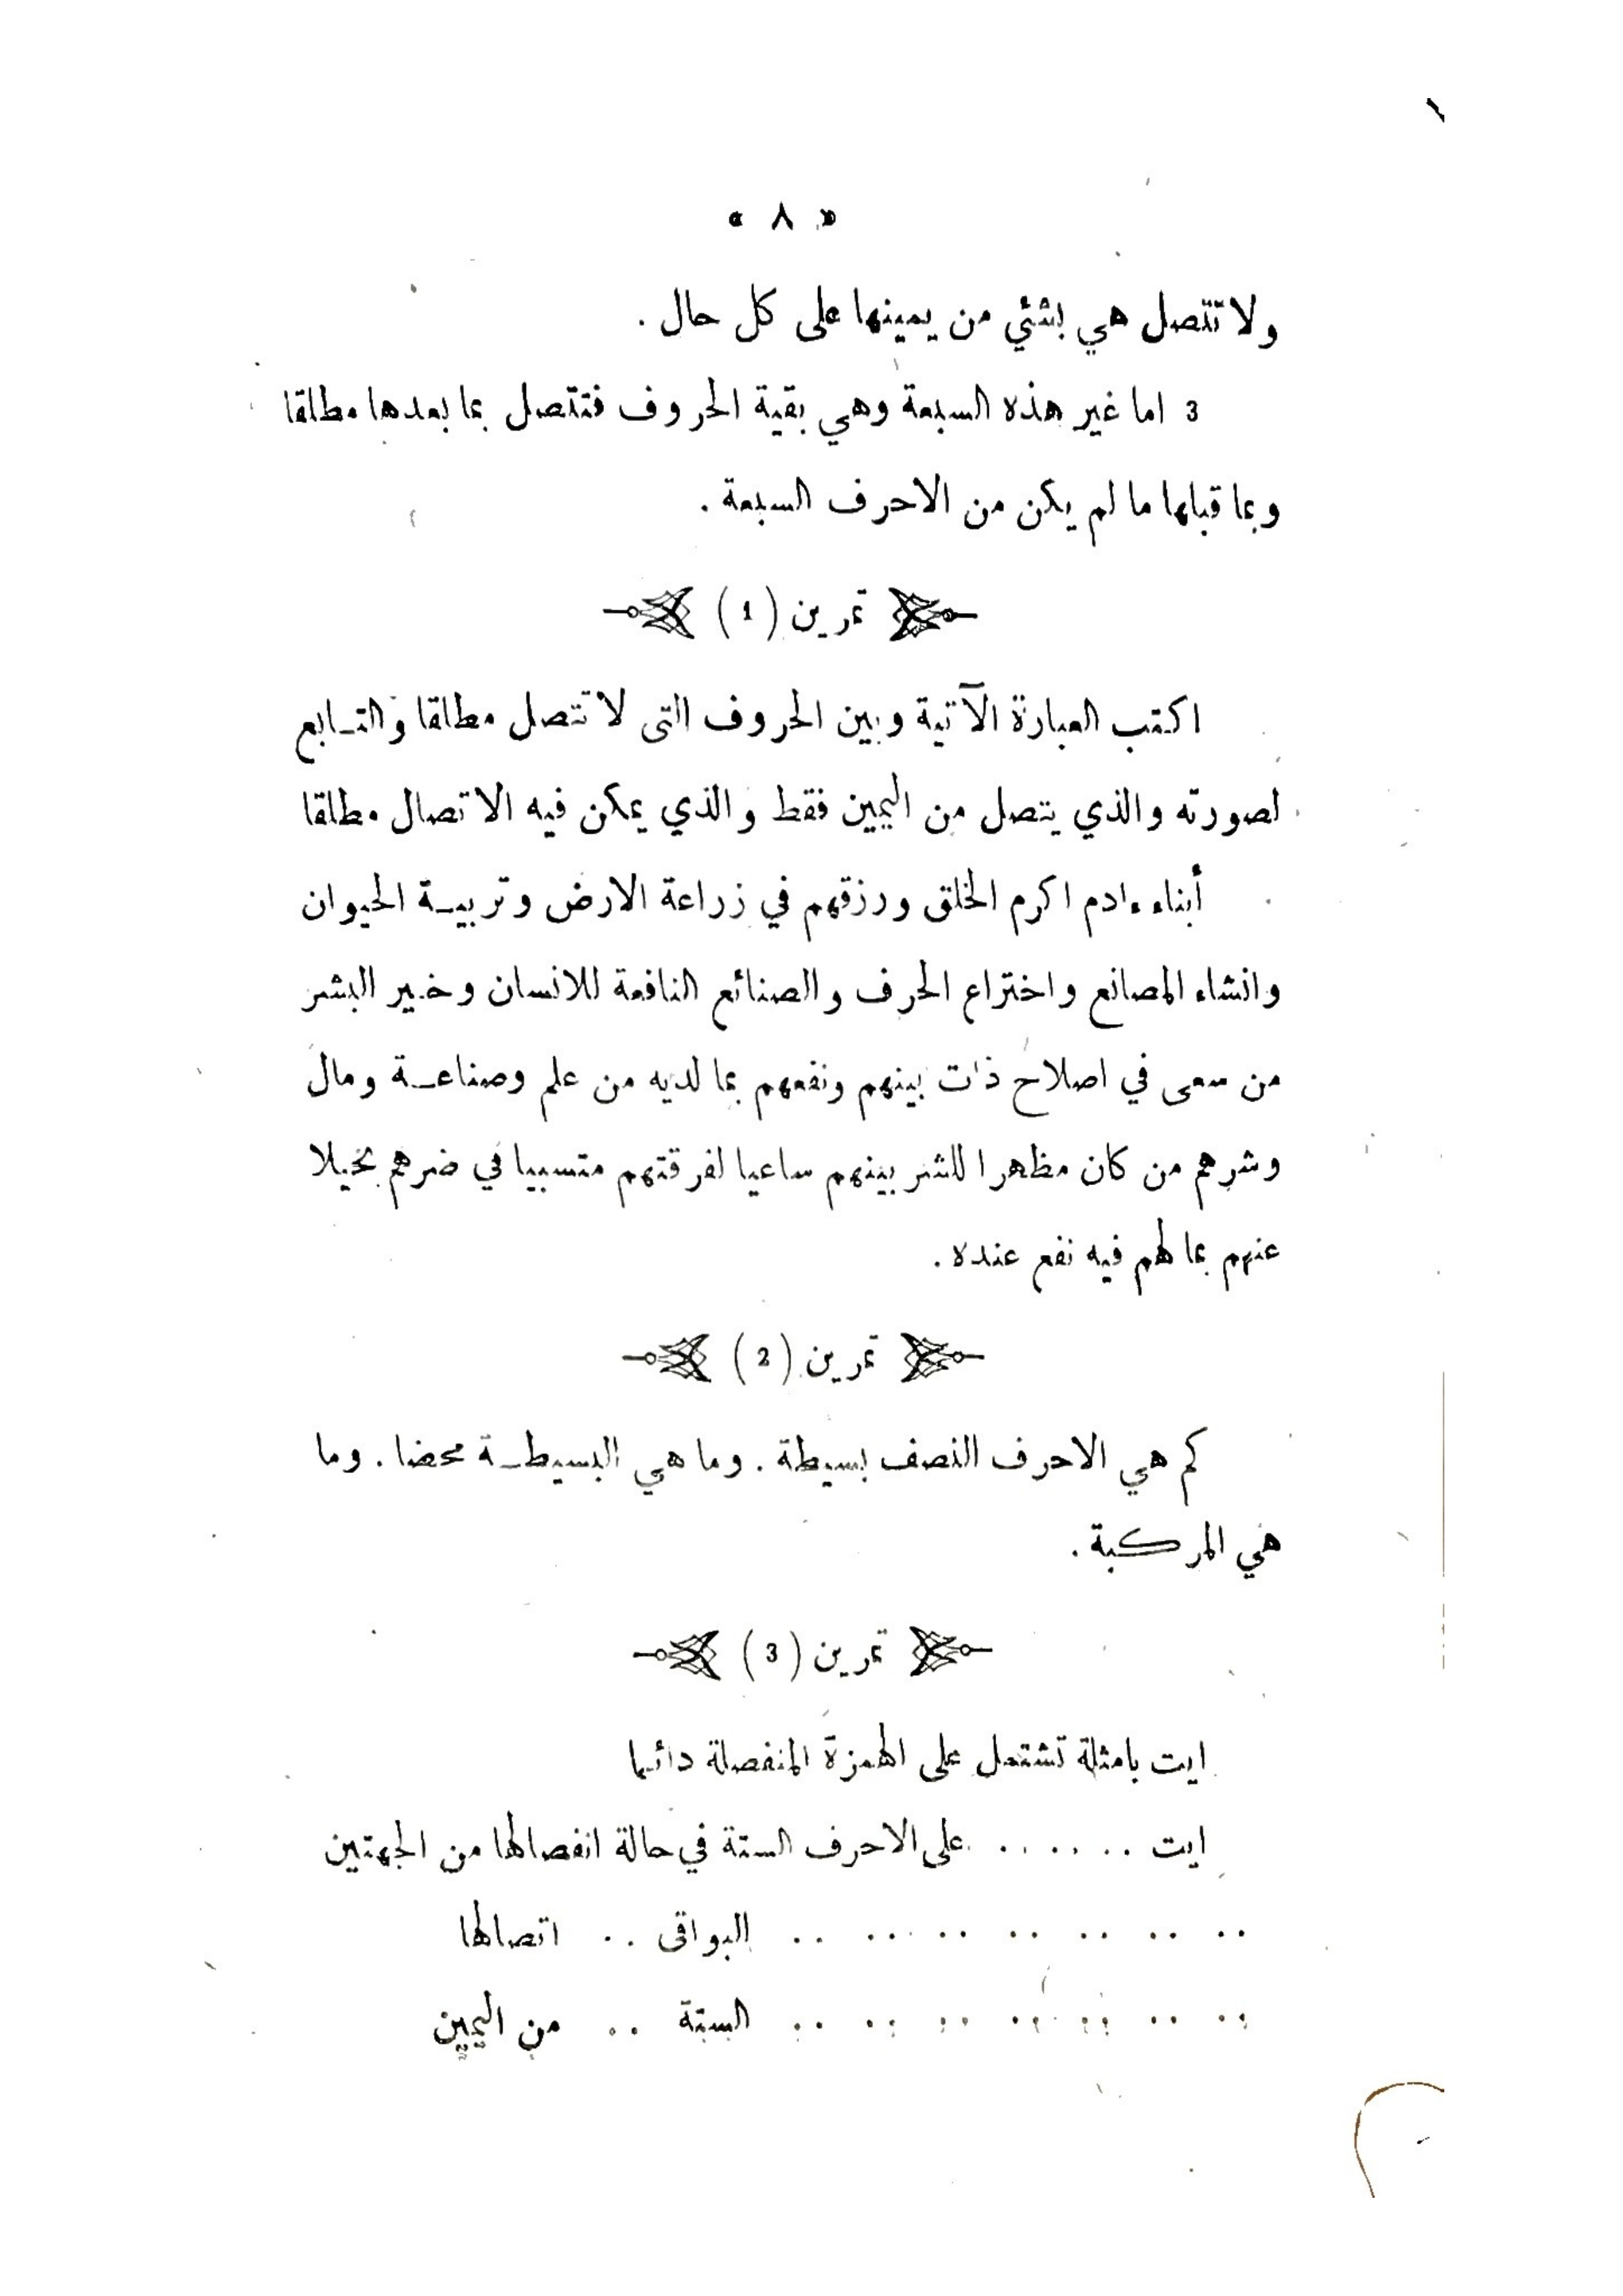 « ٨ »
ولا تتصل هي بشئي من يمينها على كل حال .
3 اما غير هذه السبعة وهي بقية الحروف فتتصل بما بعدها مطلقا
وبما قبلها ما لم يكن من الاحرف السبعة .
تمرين (1)
اكتب العبارة الآتية وبين الحروف التى لا تتصل مطلقا والتـابع
لصورته والذي يتصل من اليمين فقط والذي يمكن فيه الاتصال مطلقا
أبناء ءادم اكرم الخلق ورزقهم في زراعة الارض وتربيـة الحيوان
وانشاء المصانع واختراع الحرف والصنائع النافعة للانسان وخير البشر
من سعى في اصلاح ذات بينهم ونفعهم بما لديه من علم وصناعـة ومال
وشرهم من كان مظهرا للشر بينهم ساعيا لفرقتهم متسببا في ضرهم بخيلا
عنهم بما لهم فيه نفع عنده .
تمرين (2)
كم هي الاحرف النصف بسيطة . وما هي البسيطـة محضا . وما
هي المركبة .
تمرين (3)
ايت بامثلة تشتمل على الهمزة المنفصلة دائما
ايت . . . . . . على الاحرف الستة في حالة انفصالها من الجهتين
. . . . . . . . . . . . . . البواقى . . اتصالها
. . . . . . . . . . . . . . الستة . . من اليمين